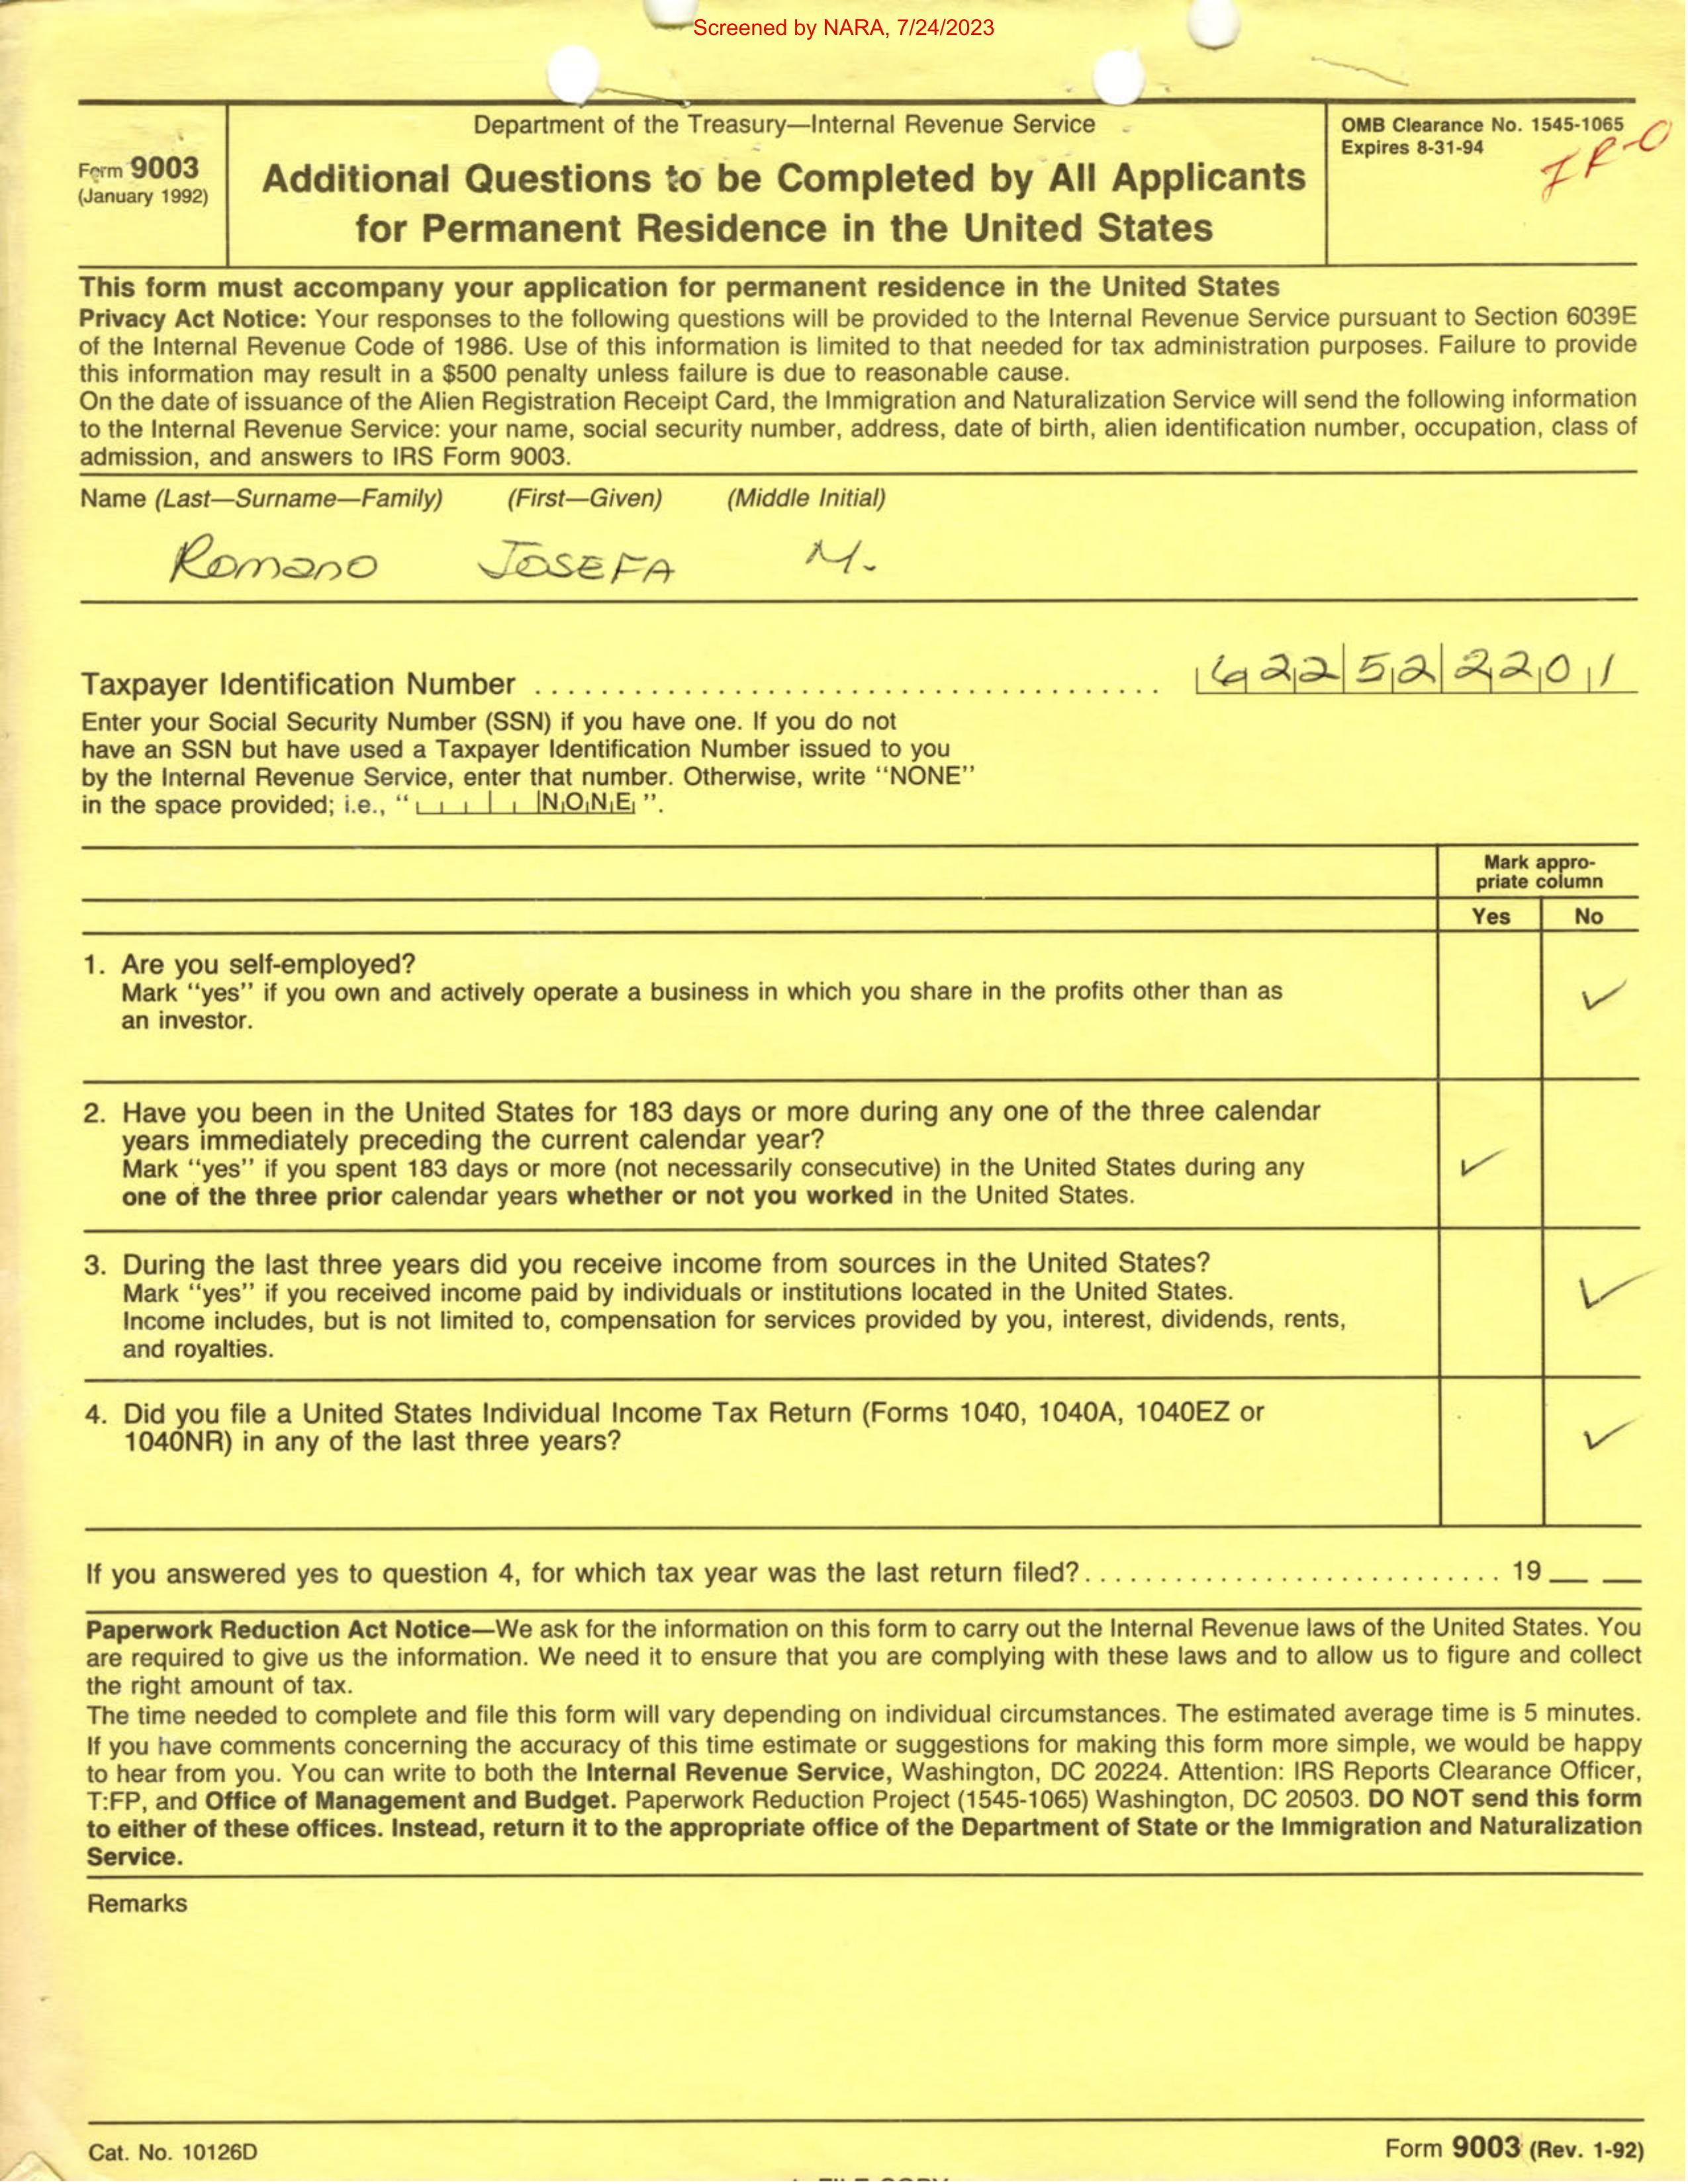 Screened by NARA, 7/24/2023
Department of the Treasury—Internal Revenue Service
OMB Clearance No. 1545-1065
Expires 8-31-94
Form 9003
(January 1992)
Additional Questions to be Completed by All Applicants
for Permanent Residence in the United States
This form must accompany your application for permanent residence in the United States
Privacy Act Notice: Your responses to the following questions will be provided to the Internal Revenue Service pursuant to Section 6039E
of the Internal Revenue Code of 1986. Use of this information is limited to that needed for tax administration purposes. Failure to provide
this information may result in a $500 penalty unless failure is due to reasonable cause.
On the date of issuance of the Alien Registration Receipt Card, the Immigration and Naturalization Service will send the following information
to the Internal Revenue Service: your name, social security number, address, date of birth, alien identification number, occupation, class of
admission, and answers to IRS Form 9003.
Name (Last—Surname—Family) (First—Given) (Middle Initial)
Romano JOSEFA M.
Taxpayer Identification Number 622 52 2201
Enter your Social Security Number (SSN) if you have one. If you do not
have an SSN but have used a Taxpayer Identification Number issued to you
by the Internal Revenue Service, enter that number. Otherwise, write "NONE"
in the space provided; i.e., " NONE ".
Mark appro-
priate column
Yes No
1. Are you self-employed?
Mark "yes" if you own and actively operate a business in which you share in the profits other than as
an investor.
2. Have you been in the United States for 183 days or more during any one of the three calendar
years immediately preceding the current calendar year?
Mark "yes" if you spent 183 days or more (not necessarily consecutive) in the United States during any
one of the three prior calendar years whether or not you worked in the United States.
3. During the last three years did you receive income from sources in the United States?
Mark "yes" if you received income paid by individuals or institutions located in the United States.
Income includes, but is not limited to, compensation for services provided by you, interest, dividends, rents,
and royalties.
4. Did you file a United States Individual Income Tax Return (Forms 1040, 1040A, 1040EZ or
1040NR) in any of the last three years?
If you answered yes to question 4, for which tax year was the last return filed? 19__ __
Paperwork Reduction Act Notice—We ask for the information on this form to carry out the Internal Revenue laws of the United States. You
are required to give us the information. We need it to ensure that you are complying with these laws and to allow us to figure and collect
the right amount of tax.
The time needed to complete and file this form will vary depending on individual circumstances. The estimated average time is 5 minutes.
If you have comments concerning the accuracy of this time estimate or suggestions for making this form more simple, we would be happy
to hear from you. You can write to both the Internal Revenue Service, Washington, DC 20224. Attention: IRS Reports Clearance Officer,
T:FP, and Office of Management and Budget. Paperwork Reduction Project (1545-1065) Washington, DC 20503. DO NOT send this form
to either of these offices. Instead, return it to the appropriate office of the Department of State or the Immigration and Naturalization
Service.
Remarks
Cat. No. 10126D
Form 9003 (Rev. 1-92)